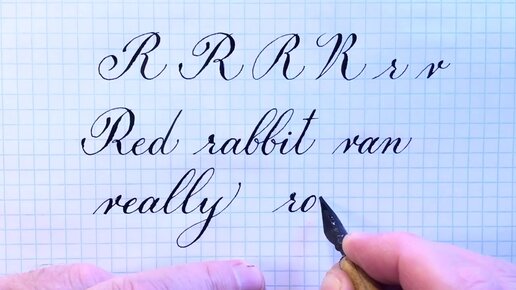 R R R R r r
Red rabbit ran
really ro